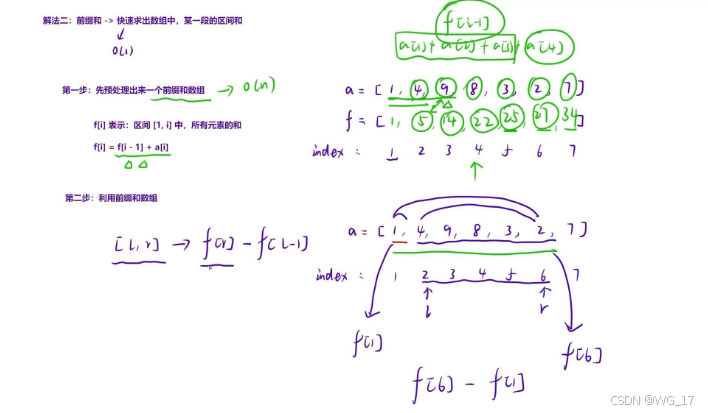 解法二：前缀和 -> 快速求出数组中，某一段的区间和
O(1)
第一步：先预处理出来一个前缀和数组 → O(n)
f[i] 表示：区间 [1, i] 中，所有元素的和
f[i] = f[i - 1] + a[i]
f[i-1]
a[1] + a[2] + a[3] + a[4]
a = [1, 4, 9, 8, 3, 2, 7]
f = [1, 5, 14, 22, 25, 27, 34]
index : 1 2 3 4 5 6 7
第二步：利用前缀和数组
[l, r] → f[r] - f[l-1]
a = [1, 4, 9, 8, 3, 2, 7]
index : 1 2 3 4 5 6 7
l r
f[1] f[6]
f[6] - f[1]
CSDN @WG_17